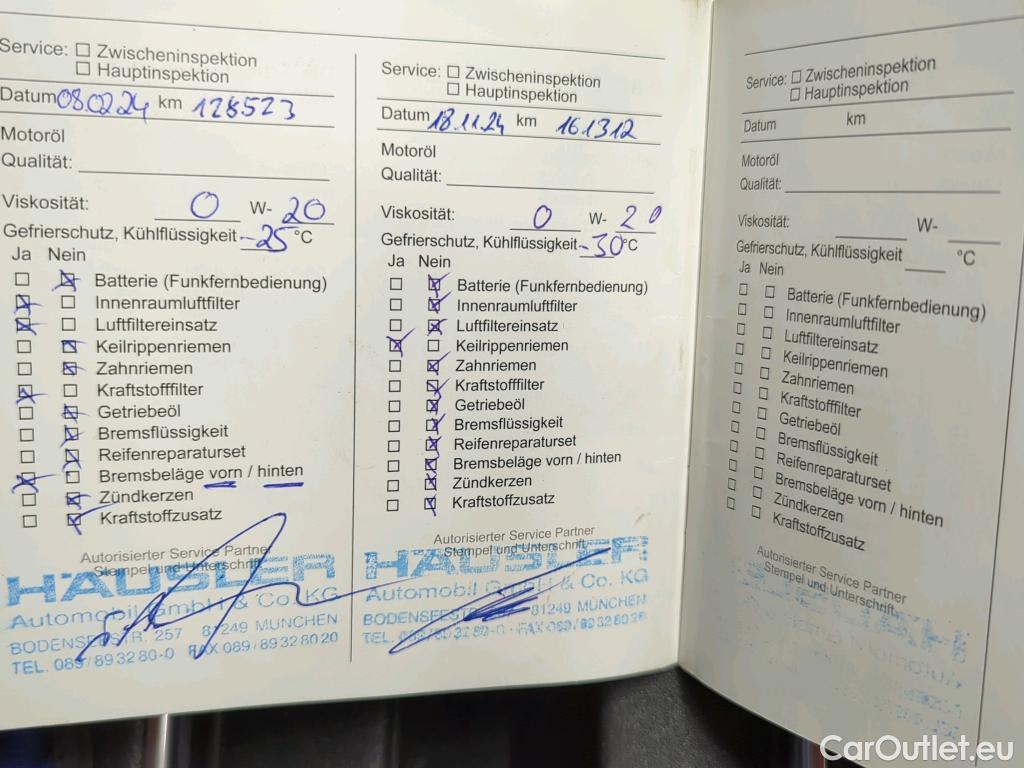 Service: Zwischeninspektion
Hauptinspektion
Datum 08.02.24 km 128523
Motoröl
Qualität:
Viskosität: 0 W- 20
Gefrierschutz, Kühlflüssigkeit -25 °C
Ja Nein
Batterie (Funkfernbedienung)
Innenraumluftfilter
Luftfiltereinsatz
Keilrippenriemen
Zahnriemen
Kraftstofffilter
Getriebeöl
Bremsflüssigkeit
Reifenreparaturset
Bremsbeläge vorn / hinten
Zündkerzen
Kraftstoffzusatz
Autorisierter Service Partner
Stempel und Unterschrift
HÄUSLER
Automobil GmbH & Co. KG
BODENSEESTR. 257 81249 MÜNCHEN
TEL. 089/89 32 80-0 FAX 089/89 32 80 20
Service: Zwischeninspektion
Hauptinspektion
Datum 18.11.24 km 161312
Motoröl
Qualität:
Viskosität: 0 W- 20
Gefrierschutz, Kühlflüssigkeit -30 °C
Ja Nein
Batterie (Funkfernbedienung)
Innenraumluftfilter
Luftfiltereinsatz
Keilrippenriemen
Zahnriemen
Kraftstofffilter
Getriebeöl
Bremsflüssigkeit
Reifenreparaturset
Bremsbeläge vorn / hinten
Zündkerzen
Kraftstoffzusatz
Autorisierter Service Partner
Stempel und Unterschrift
HÄUSLER
Automobil GmbH & Co. KG
81249 MÜNCHEN
TEL. 089/89 32 80-0 FAX 089/89 32 80 20
Service: Zwischeninspektion
Hauptinspektion
Datum km
Motoröl
Qualität:
Viskosität: W-
Gefrierschutz, Kühlflüssigkeit °C
Ja Nein
Batterie (Funkfernbedienung)
Innenraumluftfilter
Luftfiltereinsatz
Keilrippenriemen
Zahnriemen
Kraftstofffilter
Getriebeöl
Bremsflüssigkeit
Reifenreparaturset
Bremsbeläge vorn / hinten
Zündkerzen
Kraftstoffzusatz
Autorisierter Service Partner
Stempel und Unterschrift
CarOutlet.eu